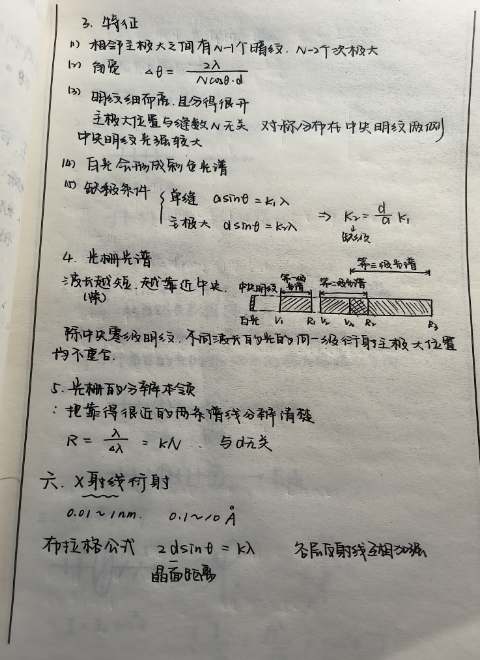 3. 特征
(1) 相邻主极大之间有N-1个暗纹, N-2个次极大
(2) 角宽 Δθ = 2λ / Ncosθ·d
(3) 明纹细而亮, 且分得很开
主极大位置与缝数N无关 对称分布在中央明纹两侧
中央明纹光强较大
(4) 白光会形成彩色光谱
(5) 缺极条件 { 单缝 asinθ = k₁λ
主极大 dsinθ = k₂λ ⇒ K₂ = d/a K₁
缺级
4. 光栅光谱
波长越短, 越靠近中央.
(紫)
第三级光谱
中央明纹 第一级光谱 第二级光谱
白光 V₁ R₁ V₂ V₃ R₂ R₃
除中央零级明纹, 不同波长的光的同一级衍射主极大位置
均不重合.
5. 光栅的分辨本领
: 把靠得很近的两条谱线分辨清楚
R = λ/Δλ = kN . 与d无关
六. X射线衍射
0.01~1nm. 0.1~10 Å
布拉格公式 2dsinθ = kλ 各层反射线互相加强
晶面距离